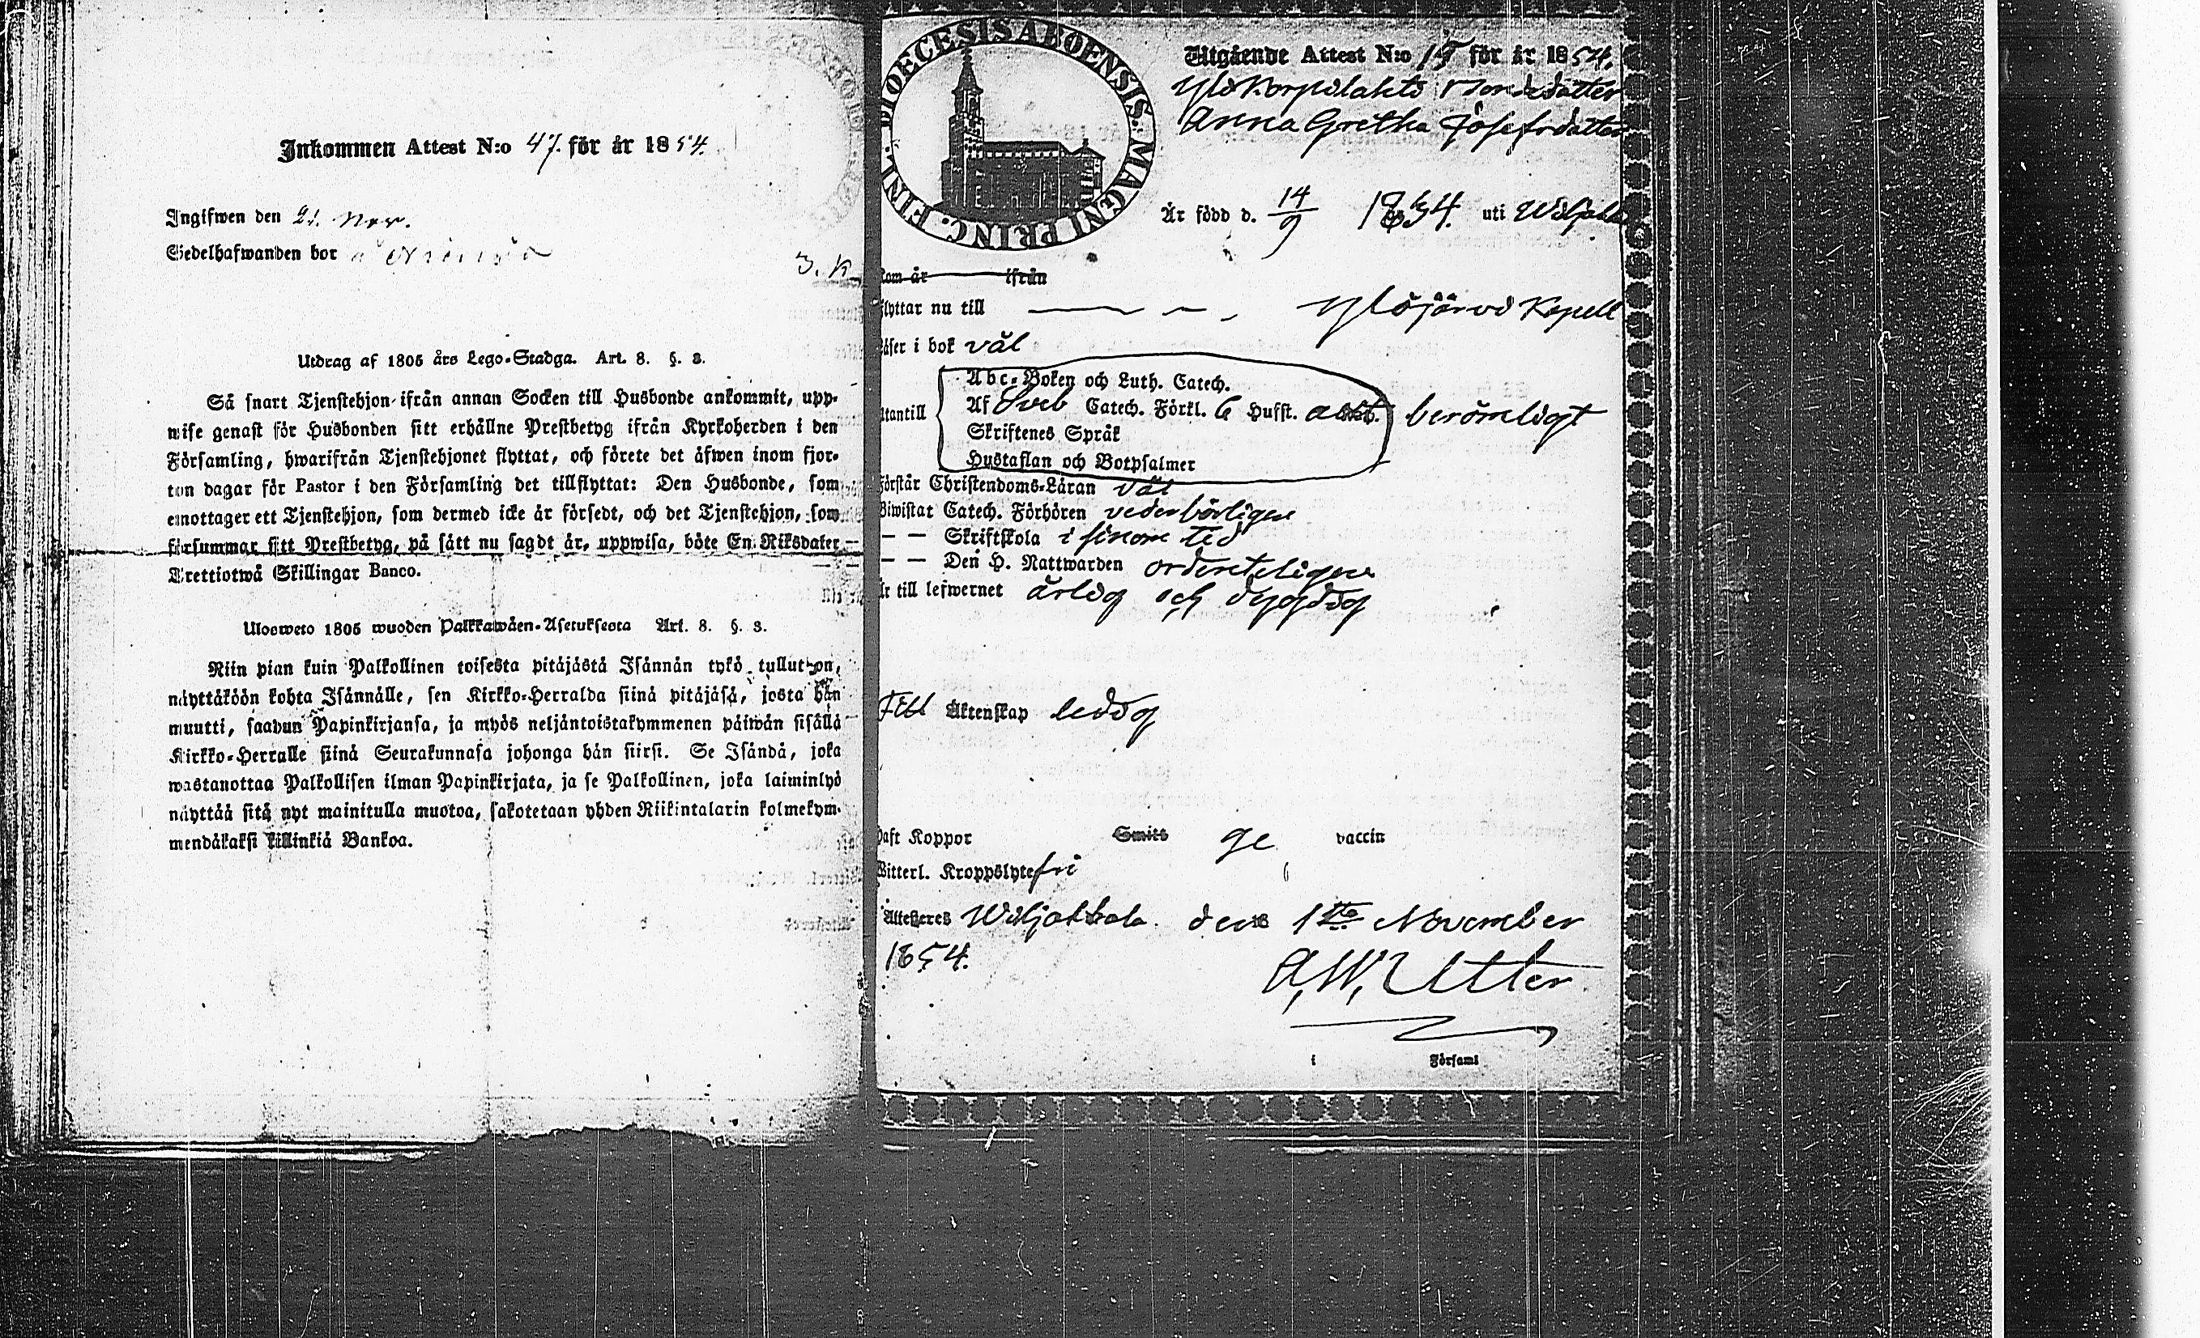 Inkommen Attest N:o 47. för år 1854.
Ingifwen den 21. Nov.
Sedelhafwanden bor
3. K
Utdrag af 1805 års Lego-Stadga. Art. 8. §. 3.
Så snart Tjenstehjon ifrån annan Socken till Husbonde ankommit, upp-
wise genast för Husbonden sitt erhållne Prestbetyg ifrån Kyrkoherden i den
Församling, hwarifrån Tjenstehjonet flyttat, och förete det äfwen inom fjor-
ton dagar för Pastor i den Församling det tillflyttat: Den Husbonde, som
emottager ett Tjenstehjon, som dermed icke är försedt, och det Tjenstehjon, som
försummar sitt Prestbetyg, på sätt nu sagdt är, uppwisa, böte En Riksdaler
Trettiotwå Skillingar Banco.
Ulosweto 1805 wuoden Palkkawäen-Asetuksesta Art. 8. §. 3.
Niin pian kuin Palkollinen toisesta pitäjästä Isännän tykö tullut on,
näyttäköön kohta Isännälle, sen Kirkko-Herralda siinä pitäjäsä, josta hän
muutti, saadun Papinkirjansa, ja myös neljäntoistakymmenen päiwän sisällä
Kirkko-Herralle siinä Seurakunnasa johonga hän siirsi. Se Isändä, joka
wastanottaa Palkollisen ilman Papinkirjata, ja se Palkollinen, joka laiminlyö
näyttää sitä nyt mainitulla muotoa, sakotetaan yhden Riikintalarin kolmekym-
mendäkaksi killinkiä Bankoa.
DIOECESIS ABOENSIS. MAGNI PRINC. FINL.
Utgående Attest N:o 15 för år 1854.
Ylikorpilahti Bondedotter
Anna Gretha Josefsdotter
Är född d. 14/9 1834. uti Wiljakk
Kom år ifrån
flyttar nu till Ylöjärvi Kapell
Läser i bok väl
Abc-Boken och Luth. Catech.
Utantill Af Sveb Catech. Förkl. 6 Husst. berömligt
Skriftenes Språk
Hustaflan och Botpsalmer
Förstår Christendoms-Läran väl
Biwistat Catech. Förhören vederbörligen
— — Skriftskola i sinom tid
— — Den H. Nattwarden ordenteligen
Är till lefwernet ärlig och dygdig
Till Äktenskap ledig
Haft Koppor Smitt ge vaccin
Witterl. Kroppslyte fri
Attesteres Wiljakkala den 1sta November
1854.
A. W. Utter
i Församl